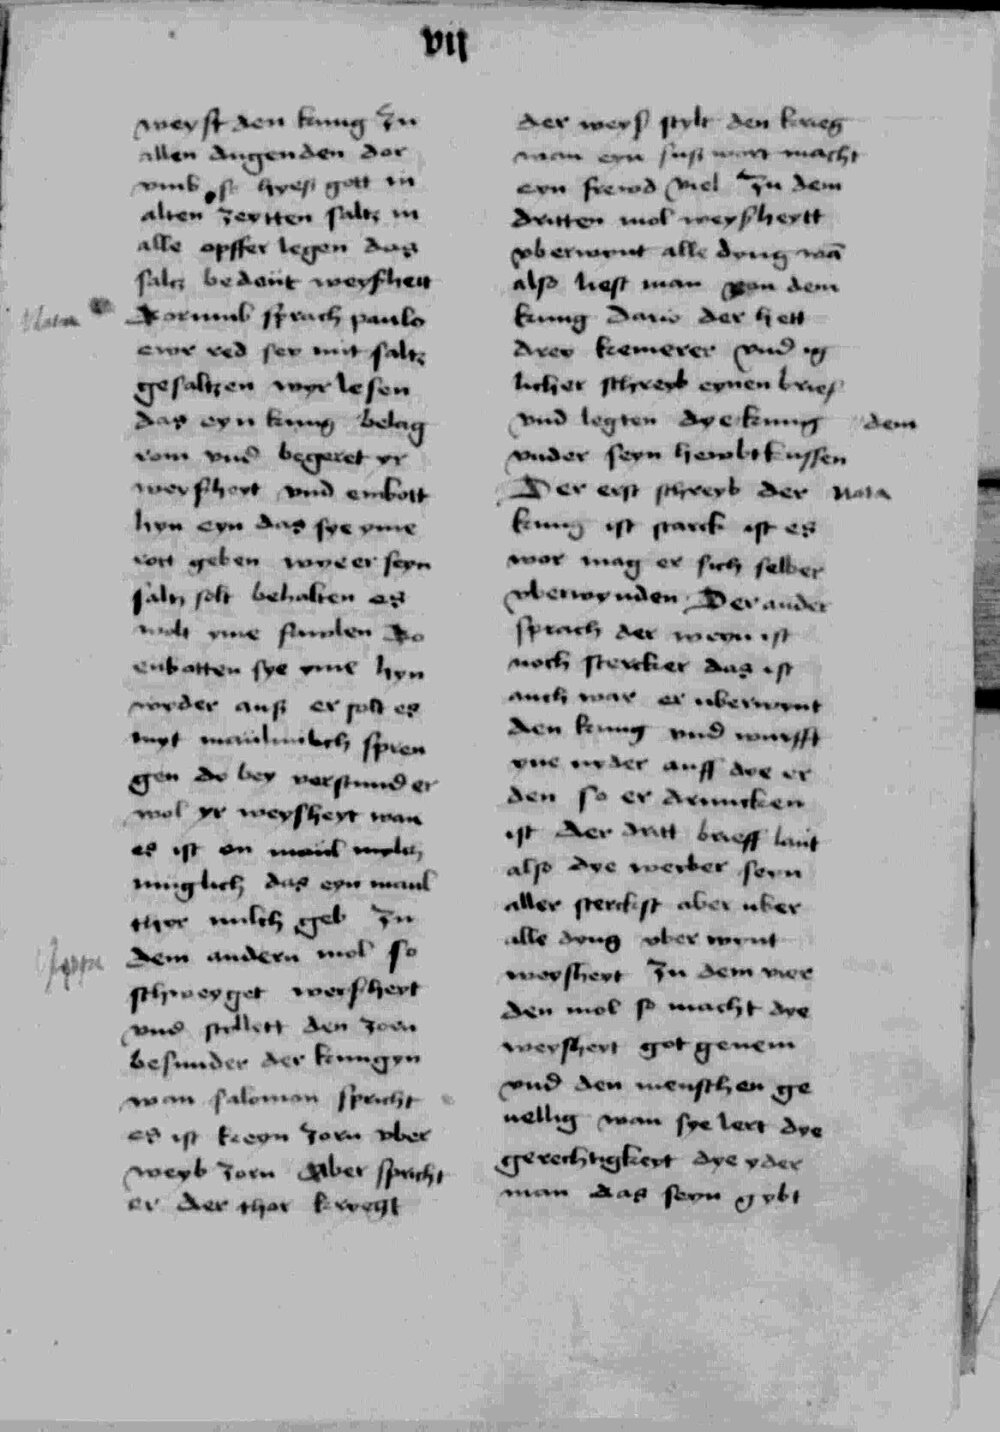 vij
weyst den kung zu
allen dugenden dor
vmb so hyeß gott in
alten zeytten saltz in
alle opffer legen das
saltz bedeüt weyßheit
Nota
Dorumb sprach paulo
ewr red sey mit saltz
gesaltzen wyr lesen
das eyn kung belag
rom vnd begeret yr
weyßheyt vnd embott
hyn eyn das sye yme
rott geben wye er seyn
saltz solt behalten es
wolt yme fawlen Do
enbotten sye yme hyn
wyder auß er solt es
myt maulmilch spren
gen do bey verstund er
wol yr weyßheyt wan
es ist on maul milch
muglich das eyn maul
thyer milch geb zu
dem andern mol so
schweyget weyßheyt
vnd stellett den zorn
besunder der kungyn
wan salomon spricht
es ist keyn zorn vber
weyb zorn Aber spricht
er der thor krvegt
der weyß stylt den krieg
wan eyn suß wort macht
eyn frewd viel Zu dem
dritten mol weyßheytt
vberwynt alle dyng wā
also liest man von dem
kung Dario der hett
drey kemerer vnd ig
licher schreyb eynen brief
vnd legten dye kung dem
vnder seyn hewbtkussen
Der erst schreyb der Nota
kung ist starck ist es
wor mag er sich selber
vberwynden Der ander
sprach der weyn ist
noch stercker das ist
auch war er uberwynt
den kung vnd wurfft
yne nyder auff dye er
den so er druncken
ist Der dritt brieff laut
also dye weyber seyn
aller sterckst aber uber
alle dyng vber wynt
weysheyt Zu dem vier
den mol so macht dye
weysheyt got genem
vnd den menschen ge
uellig wan sye lert dye
gerechtigkeyt dye yder
man das seyn gybt